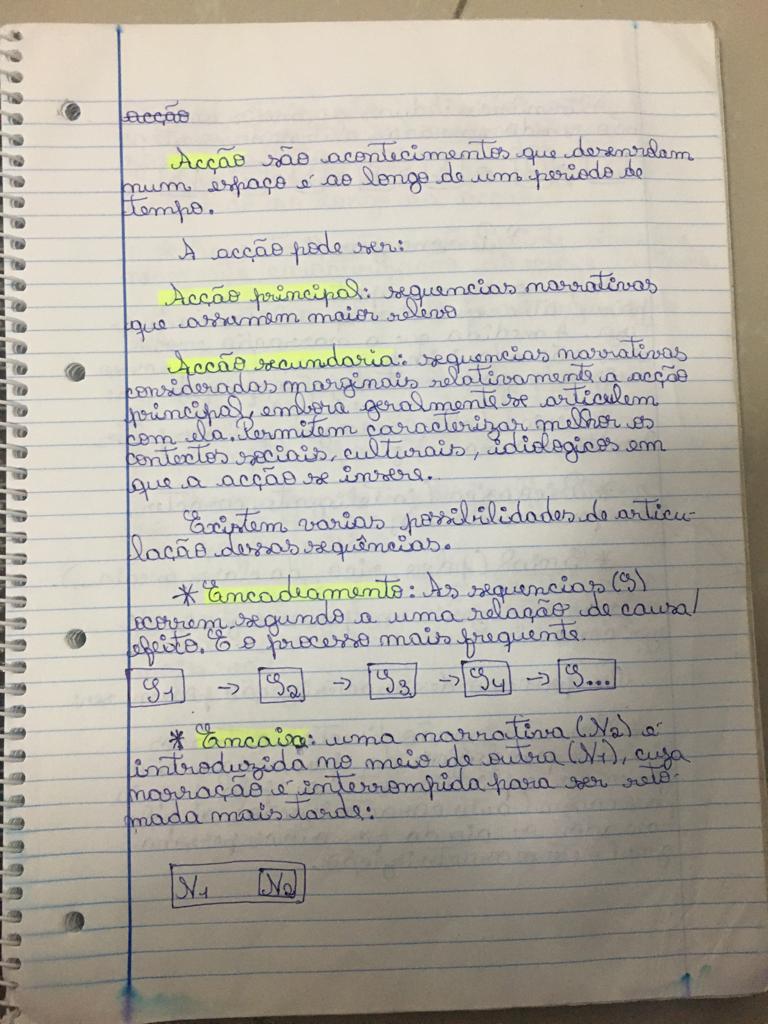 acção
Acção são acontecimentos que desenrolam
num espaço é ao longo de um periodo de
tempo.
A acção pode ser:
Acção principal: sequencias narrativas
que assumem maior relevo
Acção secundaria: sequencias narrativas
consideradas marginais relativamente a acção
principal, embora geralmente se articulem
com ela. Permitem caracterizar melhor os
contextos sociais, culturais, idiologicos em
que a acção se insere.
Existem varias possibilidades de articu-
lação dessas sequências.
* Encadeamento: As sequencias (S)
ocorrem segundo a uma relação de causa/
efeito. E o processo mais frequente.
S1 → S2 → S3 → S4 → S...
* Encaixe: uma narrativa (N2) é
introduzida no meio de outra (N1), cuja
narração é interrompida para ser reto-
mada mais tarde:
N1 N2